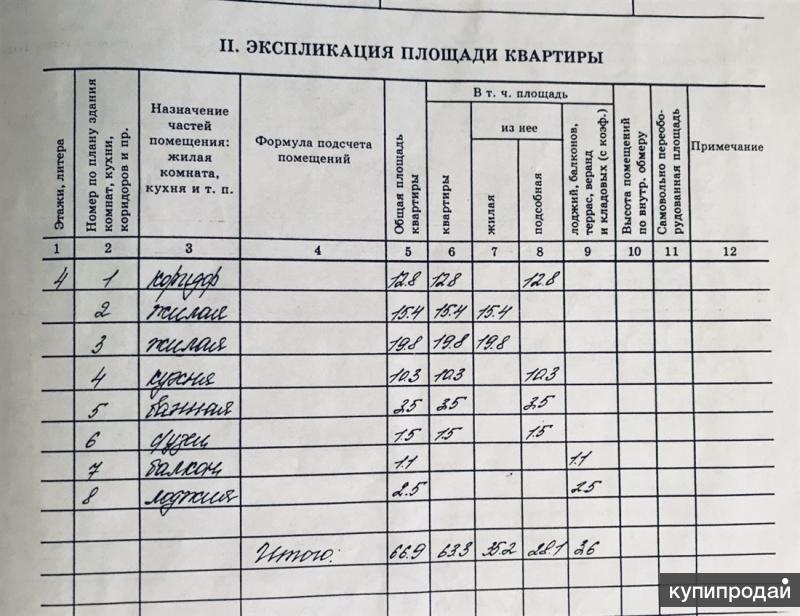 II. ЭКСПЛИКАЦИЯ ПЛОЩАДИ КВАРТИРЫ
Этажи, литера
Номер по плану здания
комнат, кухни,
коридоров и пр.
Назначение
частей
помещения:
жилая
комната,
кухня и т. п.
Формула подсчета
помещений
Общая площадь
квартиры
В т. ч. площадь
квартиры
из нее
жилая
подсобная
лоджий, балконов,
террас, веранд
и кладовых (с коэф.)
Высота помещений
по внутр. обмеру
Самовольно переобо-
рудованная площадь
Примечание
1 2 3 4 5 6 7 8 9 10 11 12
4 1 коридор 12.8 12.8 12.8
2 жилая 15.4 15.4 15.4
3 жилая 19.8 19.8 19.8
4 кухня 10.3 10.3 10.3
5 ванная 3.5 3.5 3.5
6 1.5 1.5 1.5
7 балкон 1.1 1.1
8 лоджия 2.5 2.5
Итого: 66.9 63.3 35.2 28.1 3.6
купипродай